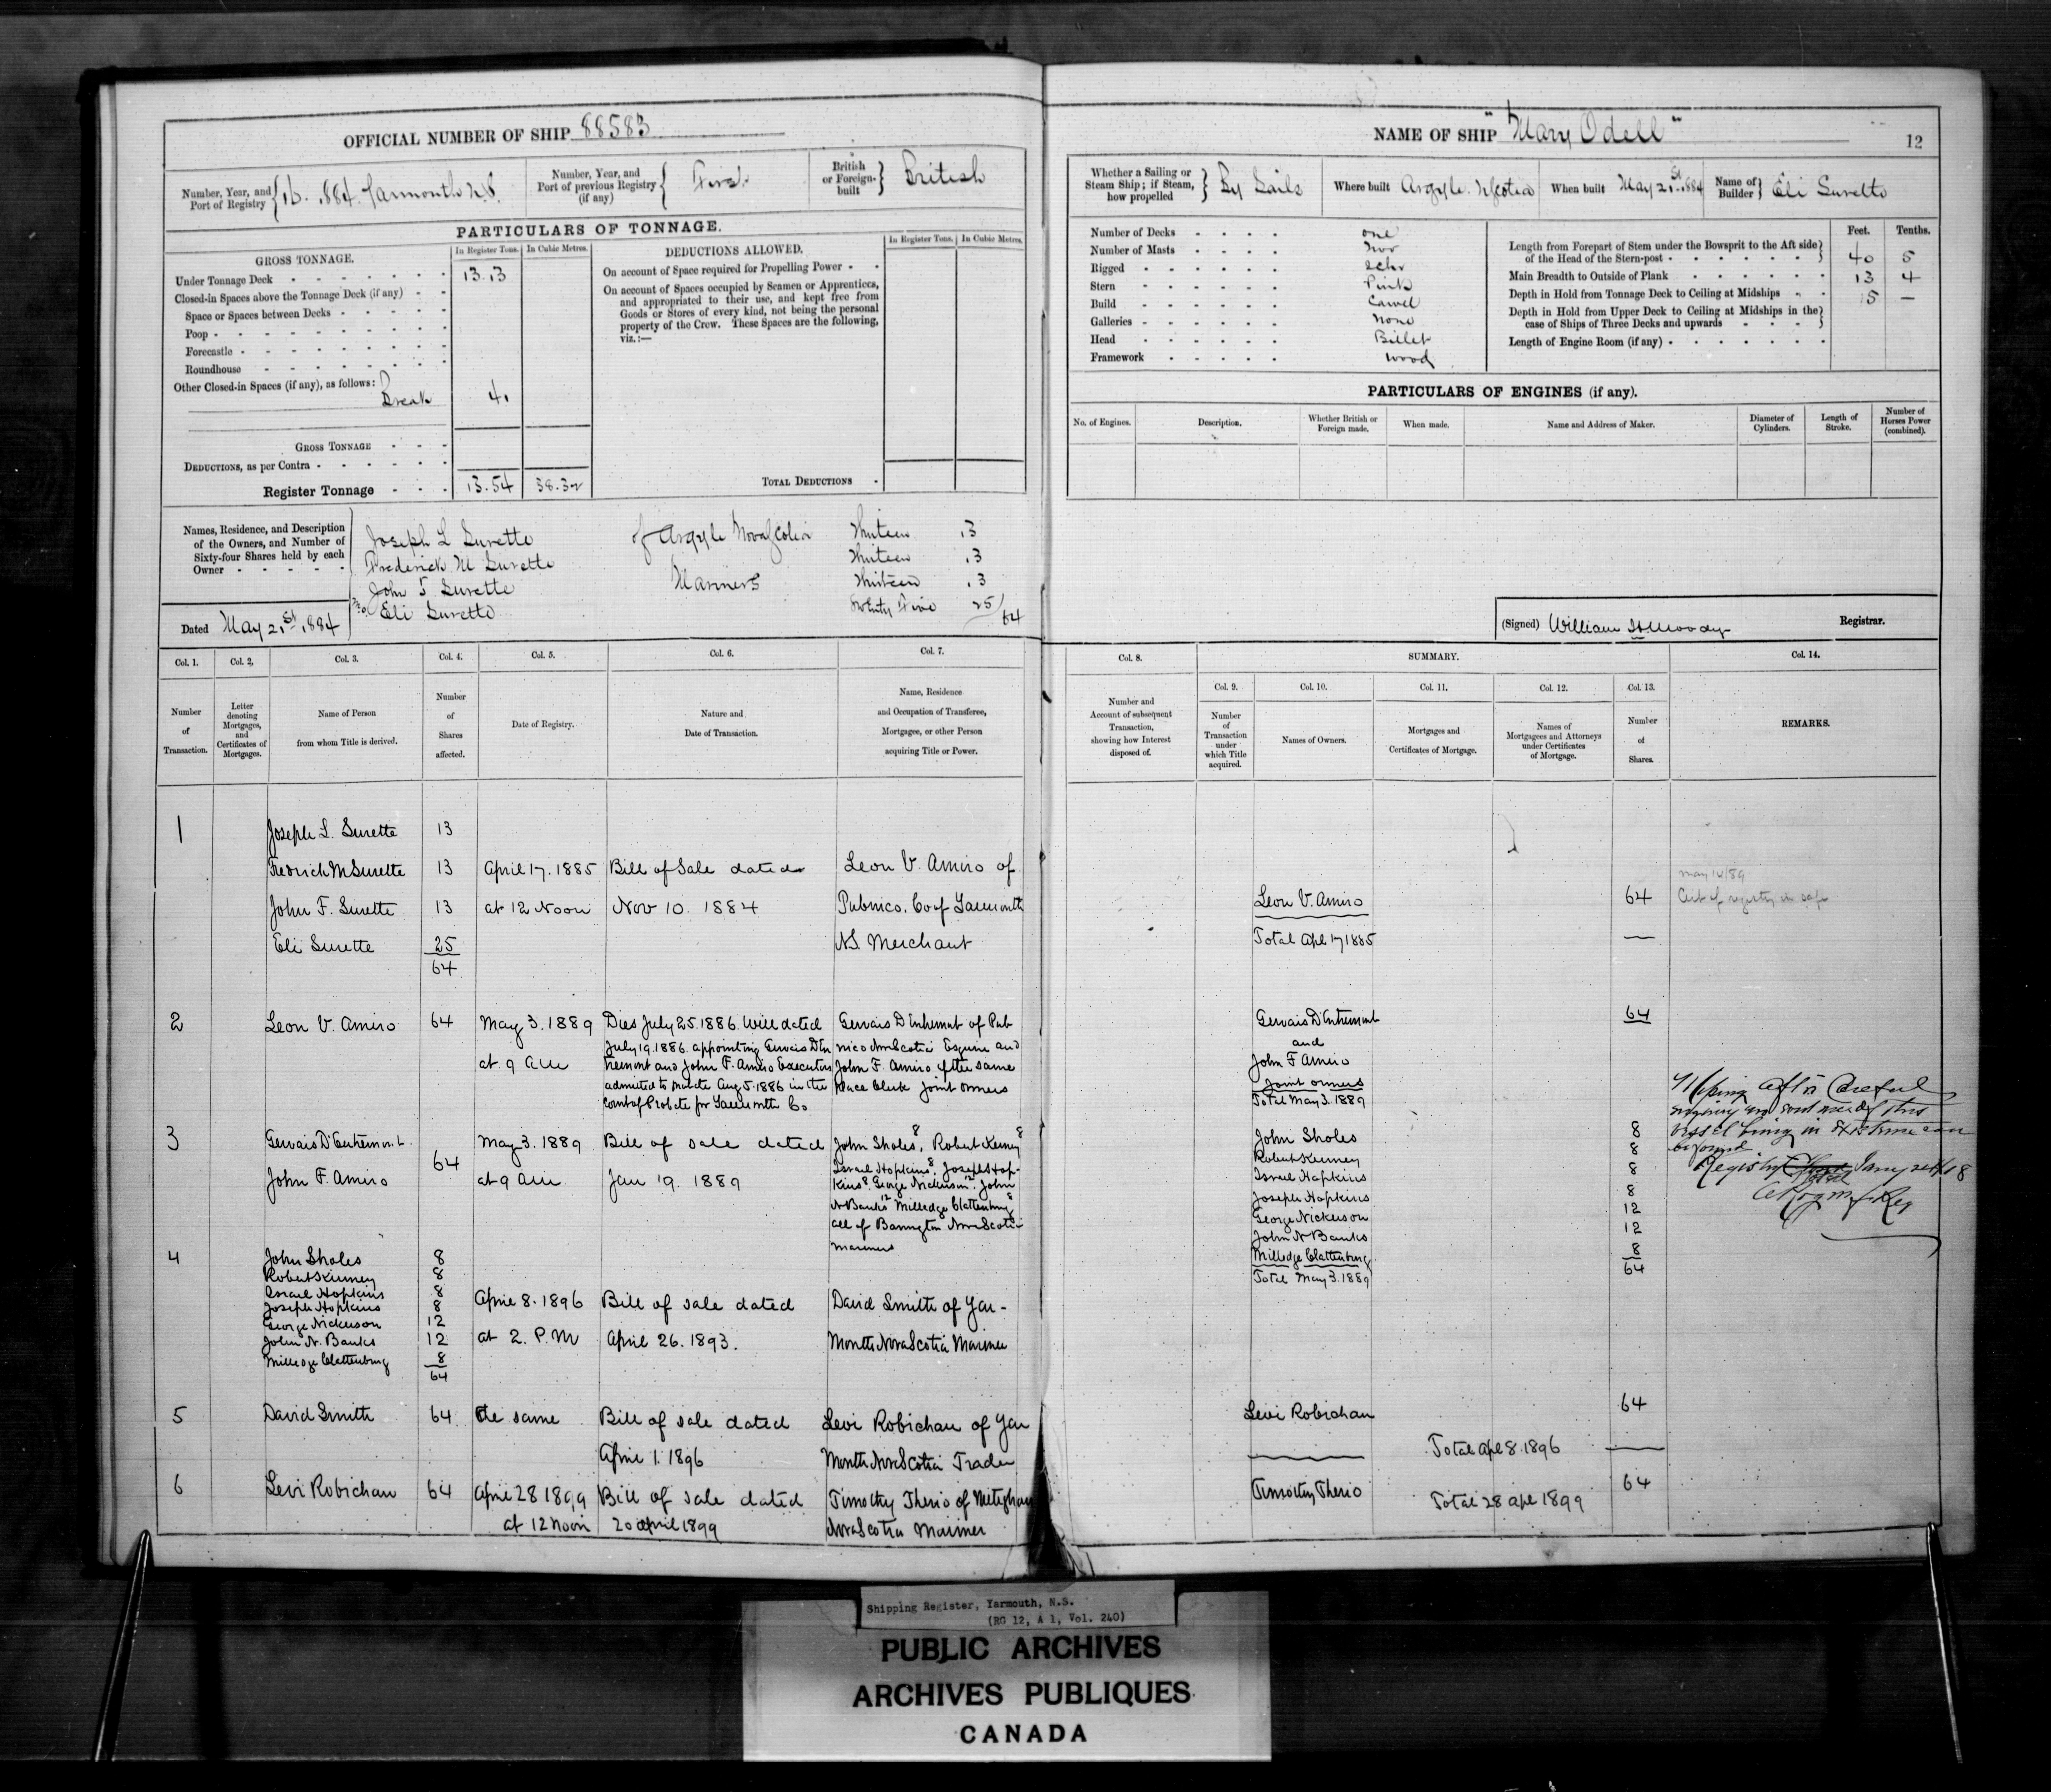 OFFICIAL NUMBER OF SHIP 88583
Number, Year, and Port of Registry 16. 1884. Yarmouth N.S.
Number, Year, and Port of previous Registry (if any) First
British or Foreign-built British
PARTICULARS OF TONNAGE.
GROSS TONNAGE.
In Register Tons. In Cubic Metres.
Under Tonnage Deck 13.13
Closed-in Spaces above the Tonnage Deck (if any)
Space or Spaces between Decks
Poop
Forecastle
Roundhouse
Other Closed-in Spaces (if any), as follows:
Break 41
GROSS TONNAGE
DEDUCTIONS, as per Contra
Register Tonnage 13.54 38.32
DEDUCTIONS ALLOWED.
In Register Tons. In Cubic Metres.
On account of Space required for Propelling Power
On account of Spaces occupied by Seamen or Apprentices,
and appropriated to their use, and kept free from
Goods or Stores of every kind, not being the personal
property of the Crew. These Spaces are the following,
viz.:—
TOTAL DEDUCTIONS
Names, Residence, and Description
of the Owners, and Number of
Sixty-four Shares held by each
Owner
Joseph L Surette of Argyle Nova Scotia Thirteen 13
Frederick M Surette Thirteen 13
John F. Surette Mariners Thirteen 13
Eli Surette Twenty Five 25/64
Dated May 21st 1884
Col. 1. Col. 2. Col. 3. Col. 4. Col. 5. Col. 6. Col. 7.
Number of Transaction.
Letter denoting Mortgages, and Certificates of Mortgages.
Name of Person from whom Title is derived.
Number of Shares affected.
Date of Registry.
Nature and Date of Transaction.
Name, Residence and Occupation of Transferee, Mortgagee, or other Person acquiring Title or Power.
1
Joseph L. Surette 13
Fredrich M Surette 13 April 17. 1885 Bill of Sale dated Leon V. Amiro of
John F. Surette 13 at 12 Noon Nov 10. 1884 Pubnico. Co of Yarmouth
Eli Surette 25 N.S. Merchant
64
2 Leon V. Amiro 64 May 3. 1889 Dies July 25. 1886. Will dated Gervais D'Entremont of Pub
July 19. 1886. appointing Gervais D'En nico Nova Scotia Esquire and
at 9 am tremont and John F. Amiro Executors John F. Amiro of the same
admitted to probate Aug 5. 1886 in the place Clerk joint owners
Court of Probate for Yarmouth Co
3 Gervais D'Entremont May 3. 1889 Bill of sale dated John Sholes, 8 Robert Kenney 8
64 Israel Hopkins 8, Joseph Hop-
John F. Amiro at 9 am Jan 19. 1889 kins 8. George Nickerson 12. John
N Banks 12 Milledge Clattenburg 8
all of Barrington Nova Scotia
mariners
4 John Sholes 8
Robert Kenney 8
Israel Hopkins 8
Joseph Hopkins 8 April 8. 1896 Bill of sale dated David Smith of Yar-
George Nickerson 12
John N. Banks 12 at 2. P.M April 26. 1893. Mouth Nova Scotia Mariner
Milledge Clattenburg 8
64
5 David Smith 64 the same Bill of sale dated Levi Robichau of Yar
April 1. 1896 Mouth Nova Scotia Trader
6 Levi Robichau 64 April 28 1899 Bill of sale dated Timothy Therio of Meteghan
at 12 noon 20 April 1899 Nova Scotia Mariner
NAME OF SHIP "Mary Odell"
12
Whether a Sailing or Steam Ship; if Steam, how propelled By Sails
Where built Argyle. N Scotia
When built May 21st 1884
Name of Builder Eli Surette
Number of Decks one
Number of Masts two
Rigged Schr
Stern Pink
Build Carvel
Galleries None
Head Billet
Framework wood
Feet. Tenths.
Length from Forepart of Stem under the Bowsprit to the Aft side
of the Head of the Stern-post 40 5
Main Breadth to Outside of Plank 13 4
Depth in Hold from Tonnage Deck to Ceiling at Midships 5 —
Depth in Hold from Upper Deck to Ceiling at Midships in the
case of Ships of Three Decks and upwards
Length of Engine Room (if any)
PARTICULARS OF ENGINES (if any).
No. of Engines.
Description.
Whether British or Foreign made.
When made.
Name and Address of Maker.
Diameter of Cylinders.
Length of Stroke.
Number of Horses Power (combined).
(Signed) William H Moody Registrar.
Col. 8. SUMMARY. Col. 14.
Col. 9. Col. 10. Col. 11. Col. 12. Col. 13.
Number and Account of subsequent Transaction, showing how Interest disposed of.
Number of Transaction under which Title acquired.
Names of Owners.
Mortgages and Certificates of Mortgage.
Names of Mortgagees and Attorneys under Certificates of Mortgage.
Number of Shares.
REMARKS.
May 14/89
Leon V. Amiro 64 Cert of registry in safe
Total Apl 17 1885 —
Gervais D'Entremont 64
and
John F Amiro
joint owners
Total May 3. 1889
John Sholes 8
Robert Kenney 8
Israel Hopkins 8
Joseph Hopkins 8
George Nickerson 12
John N Banks 12
Milledge Clattenburg 8
64
Total May 3. 1889
after Careful
this
vessel being in existence can
be found
Registry Closed
Levi Robichau 64
Total Apl 8. 1896
Timothy Therio 64
Total 28 Apl 1899
Shipping Register, Yarmouth, N.S.
(RG 12, A 1, Vol. 240)
PUBLIC ARCHIVES
ARCHIVES PUBLIQUES
CANADA